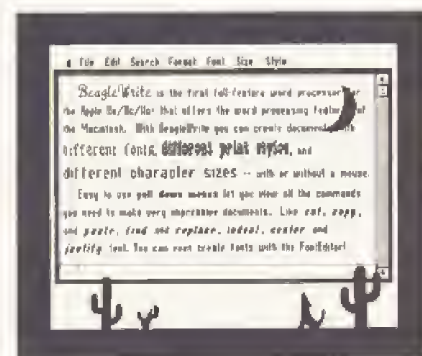 File Edit Search Format Font Size Style
BeagleWrite is the first full-feature word processor for
the Apple IIe/IIc/IIgs that offers the word processing features of
the Macintosh. With BeagleWrite you can create documents with
different fonts, different print styles, and
different character sizes -- with or without a mouse.
Easy to use pull down menus let you view all the commands
you need to make very impressive documents. Like cut, copy,
and paste, find and replace, indent, center and
justify text. You can even create fonts with the FontEditor!